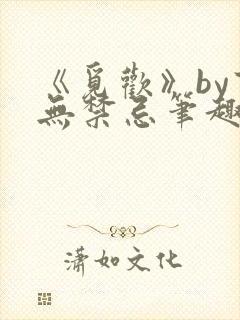 《覓歡》by
無禁忌筆趣
瀟如文化